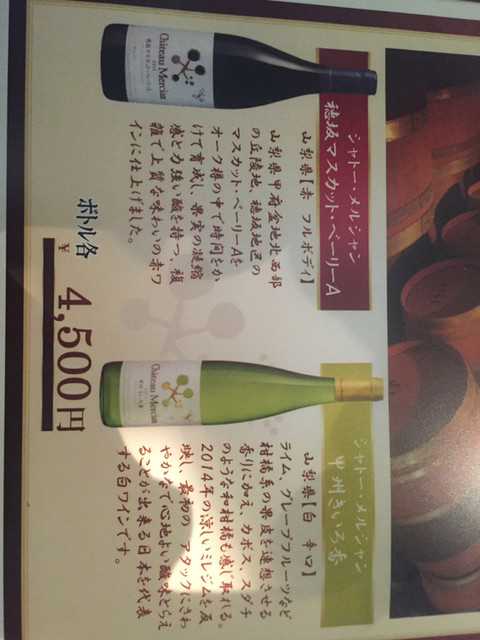 シャトー・メルシャン
穂坂マスカット・ベーリーA
山梨県【赤 フルボディ】
山梨県甲府盆地北西部
の丘陵地、穂坂地区の
マスカット・ベーリーAを
オーク樽の中で時間をか
けて育成し、果実の凝縮
感と力強い酸を持つ、複
雑で上質な味わいの赤ワ
インに仕上げました。
Château Mercian
シャトー・メルシャン
甲州きいろ香
山梨県【白 辛口】
ライム、グレープフルーツなど
柑橘系の果皮を連想させる
香りに加え、カボス、スダチ
のような和柑橘も感じ取れる。
2014年の涼しいミレジムを反
映し、最初の アタックにさわ
やかなで心地よい酸味とらえ
ることが出来る日本を代表
する白ワインです。
Château Mercian
ボトル各
¥4,500円